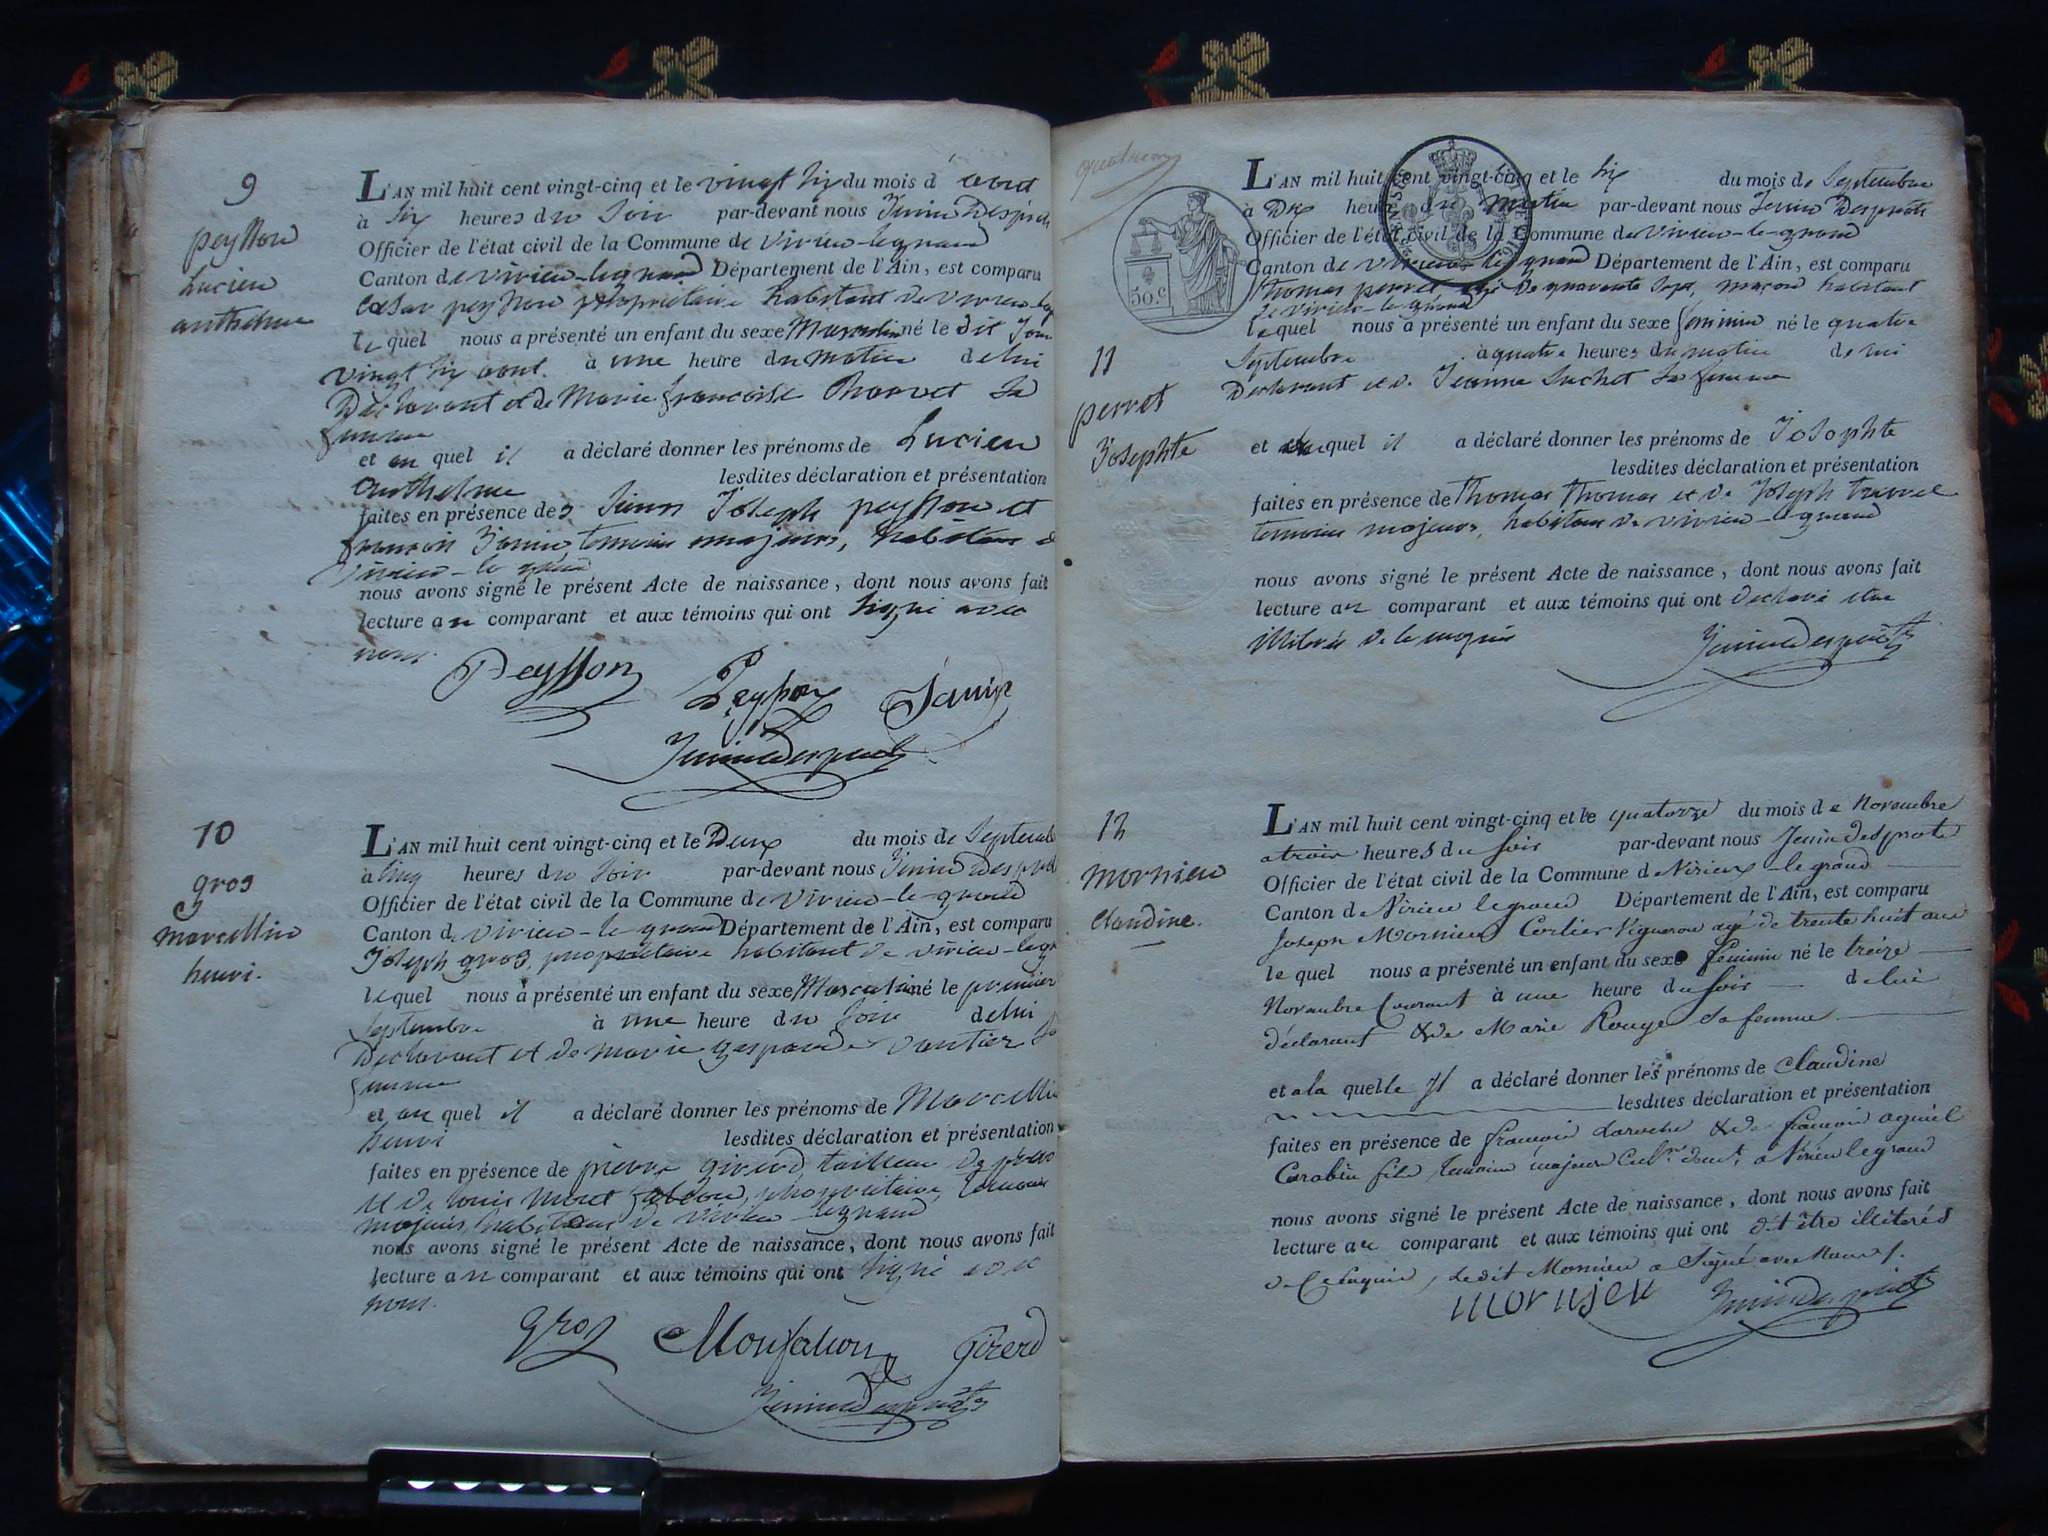 9
peysson
Lucien
anthelme
L'AN mil huit cent vingt-cinq et le vingt six du mois d'aout
à six heures du soir par-devant nous
Officier de l'état civil de la Commune de virieu-legrand
Canton de virieu-legrand Département de l'Ain, est comparu
peysson propriétaire habitant de virieu
lequel nous a présenté un enfant du sexe Masculin né le dit jour
vingt six aout à une heure du matin de lui
Déclarant et de Marie françoise sa
femme
et au quel il a déclaré donner les prénoms de Lucien
anthelme lesdites déclaration et présentation
faites en présence des Joseph peysson et
françois Janin témoins majeurs, habitans de
virieu-le grand
nous avons signé le présent Acte de naissance, dont nous avons fait
lecture au comparant et aux témoins qui ont signé avec
nous.
Peysson Peysson Janin
10
gros
marcellin
henri.
L'AN mil huit cent vingt-cinq et le Deux du mois de Septembre
à cinq heures du soir par-devant nous
Officier de l'état civil de la Commune de virieu-le-grand
Canton de virieu-le grand Département de l'Ain, est comparu
Joseph gros, propriétaire habitant de virieu-legr
lequel nous a présenté un enfant du sexe Masculin né le premier
Septembre à une heure du soir de lui
Déclarant et de marie gasparde vautier sa
femme
et au quel il a déclaré donner les prénoms de Marcellin
henri lesdites déclaration et présentation
faites en présence de pierre girerd, tailleur de pierres
et de louis propriétaire, témoins
majeurs, habitans de virieu-legrand
nous avons signé le présent Acte de naissance, dont nous avons fait
lecture au comparant et aux témoins qui ont signé avec
nous.
gros Monfalcon Girerd
50 c
11
perret
Josephte
L'AN mil huit cent vingt-cinq et le six du mois de Septembre
à Dix heures du matin par-devant nous
Officier de l'état civil de la Commune de virieu-le-grand
Canton de virieu le grand Département de l'Ain, est comparu
thomas perret agé de quarante sept, maçon habitant
de virieu-le-grand
lequel nous a présenté un enfant du sexe féminin né le quatre
Septembre à quatre heures du matin de lui
Déclarant et de Jeanne Suchet sa femme
et quel il a déclaré donner les prénoms de Josophte
lesdites déclaration et présentation
faites en présence de thomas thomas et de Joseph
témoins majeurs, habitans de virieu-le-grand
nous avons signé le présent Acte de naissance, dont nous avons fait
lecture au comparant et aux témoins qui ont déclaré etre
illiterés de le enquis
12
mornieu
Claudine.
L'AN mil huit cent vingt-cinq et le quatorze du mois de Novembre
a trois heures du soir par-devant nous
Officier de l'état civil de la Commune de Virieux-le grand
Canton de Virieu legrand Département de l'Ain, est comparu
Joseph Mornieu Cerlier Vigneron agé de trente huit ans
lequel nous a présenté un enfant du sexe féminin né le treize
Novembre Courant à une heure du soir de lui
déclarant & de Marie Rouge sa femme
et a la quelle Il a déclaré donner les prénoms de Claudine
lesdites déclaration et présentation
faites en présence de françois Laroche & de françois
Carabin fils témoins majeurs a Virieu legrand
nous avons signé le présent Acte de naissance, dont nous avons fait
lecture au comparant et aux témoins qui ont dit être illiterés
de ce enquis, ledit Mornieu a Signé avec Nous
mornieu